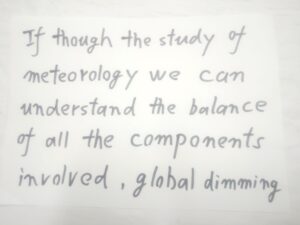 If though the study of
meteorology we can
understand the balance
of all the components
involved, global dimming